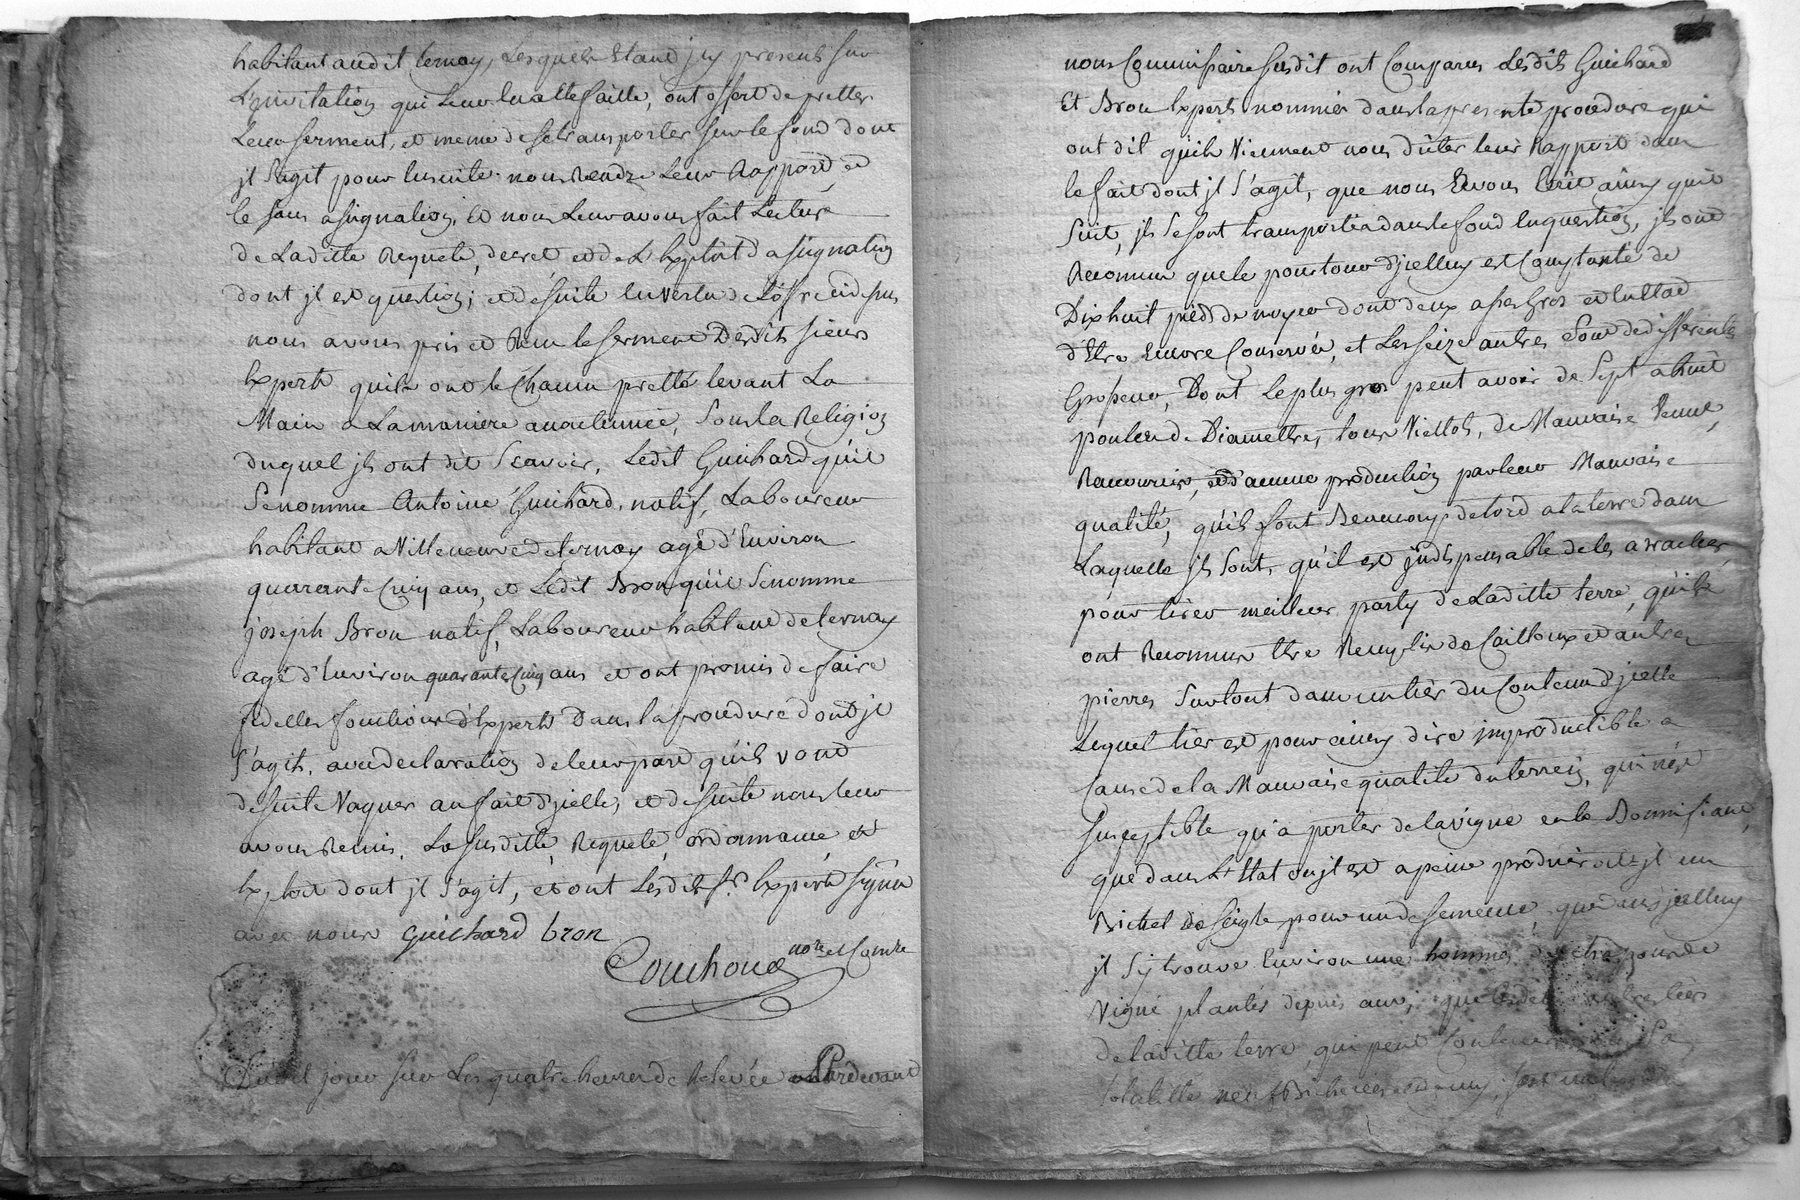 habitant audit ternay, Lesquels Etant jcy presents sur
L'jnvitation qui Leur En a ette faitte, ont offert de pretter
Leur serment, et meme de se transporter sur le fond dont
jl s'agit pour Ensuite nous Rendre Leur Rapport, et
le sans assignation, Et nous Leur avons fait Lecture
de Laditte Requete, decret et de L'Exploit d'assignation
dont jl est question; et de suite En vertu de L'offre cidessus
nous avons pris et Reçu le serment Desdits sieurs
Experts quils ont de Chacun pretté levant La
Main a La maniere accoutumée, Sous La Religion
duquel jls ont dit Scavoir, Ledit Guichard qu'il
Se nomme Antoine Guichard, natif, Laboureur
habitant a Villeneuve de ternay agé d'Environ
quarante Cinq ans, et Ledit Bron qu'il Se nomme
joseph Bron natif, Laboureur habitant de ternay
agé d'Environ quarante Cinq ans et ont promis de faire
fidelles fonctions d'Experts Dans la procedure dont jl
S'agit, avec declaration de leur part quils vont
de suite Vaquer au fait d'jcelle, et de suite nous leur
avons Remis, La susditte Requete, ordonnance, et
Exploit dont jl s'agit, et ont Lesdits Srs Experts signé
avec nous Guichard bron
Couchoud nore et Comre
Dudit jour sur Les quatre heures de Relevée Pardevant
nous Commissaire susdit ont Comparus Lesdits Guichard
Et Bron Experts nommés dans la presente procedure qui
ont dit quils Viennent nous dicter leur Rapport dans
le fait dont jl s'agit, que nous avons Ecrit ainsy quil
Suit, jls se sont transportés dans le fond En question, jls ont
Reconnu que le pourtour d'jcelluy est Complanté de
Dixhuit pieds de noyer dont deux assés gros et En Etat
d'Etre Encore Conservés, et Les seize autres sont de differente
Grosseur, Dont Le plus gros peut avoir de Sept a huit
pouces de Diamettre, tous Viellots, de Mauvaise Venue,
Raccourcis, et d'aucune production par leur Mauvaise
qualité, quils font Beaucoup de tord a la terre dans
Laquelle jls Sont, qu'il est jndispensable de les arracher
pour tirer meilleur party de Laditte terre, quils
ont Reconnu Etre Remplie de Cailloux et autres
pierres Surtout dans un tiers du Contenu d'jcelle
Lequel tiers est pour ainsy dire jmproductible a
Cause de la Mauvaise qualité du terrein, qui n'est
susceptible qu'a porter de la vigne en le Bonnifiant,
que dans L'Etat ou jl est a peine produiroit jl un
Bichet De seigle pour un de semence, que dans jcelluy
jl s'y trouve Environ une hommée de
Vigne plantée depuis ans, que Les deux autres tiers
de laditte terre, qui peut Contenir La
totalitte neuf Bicherées